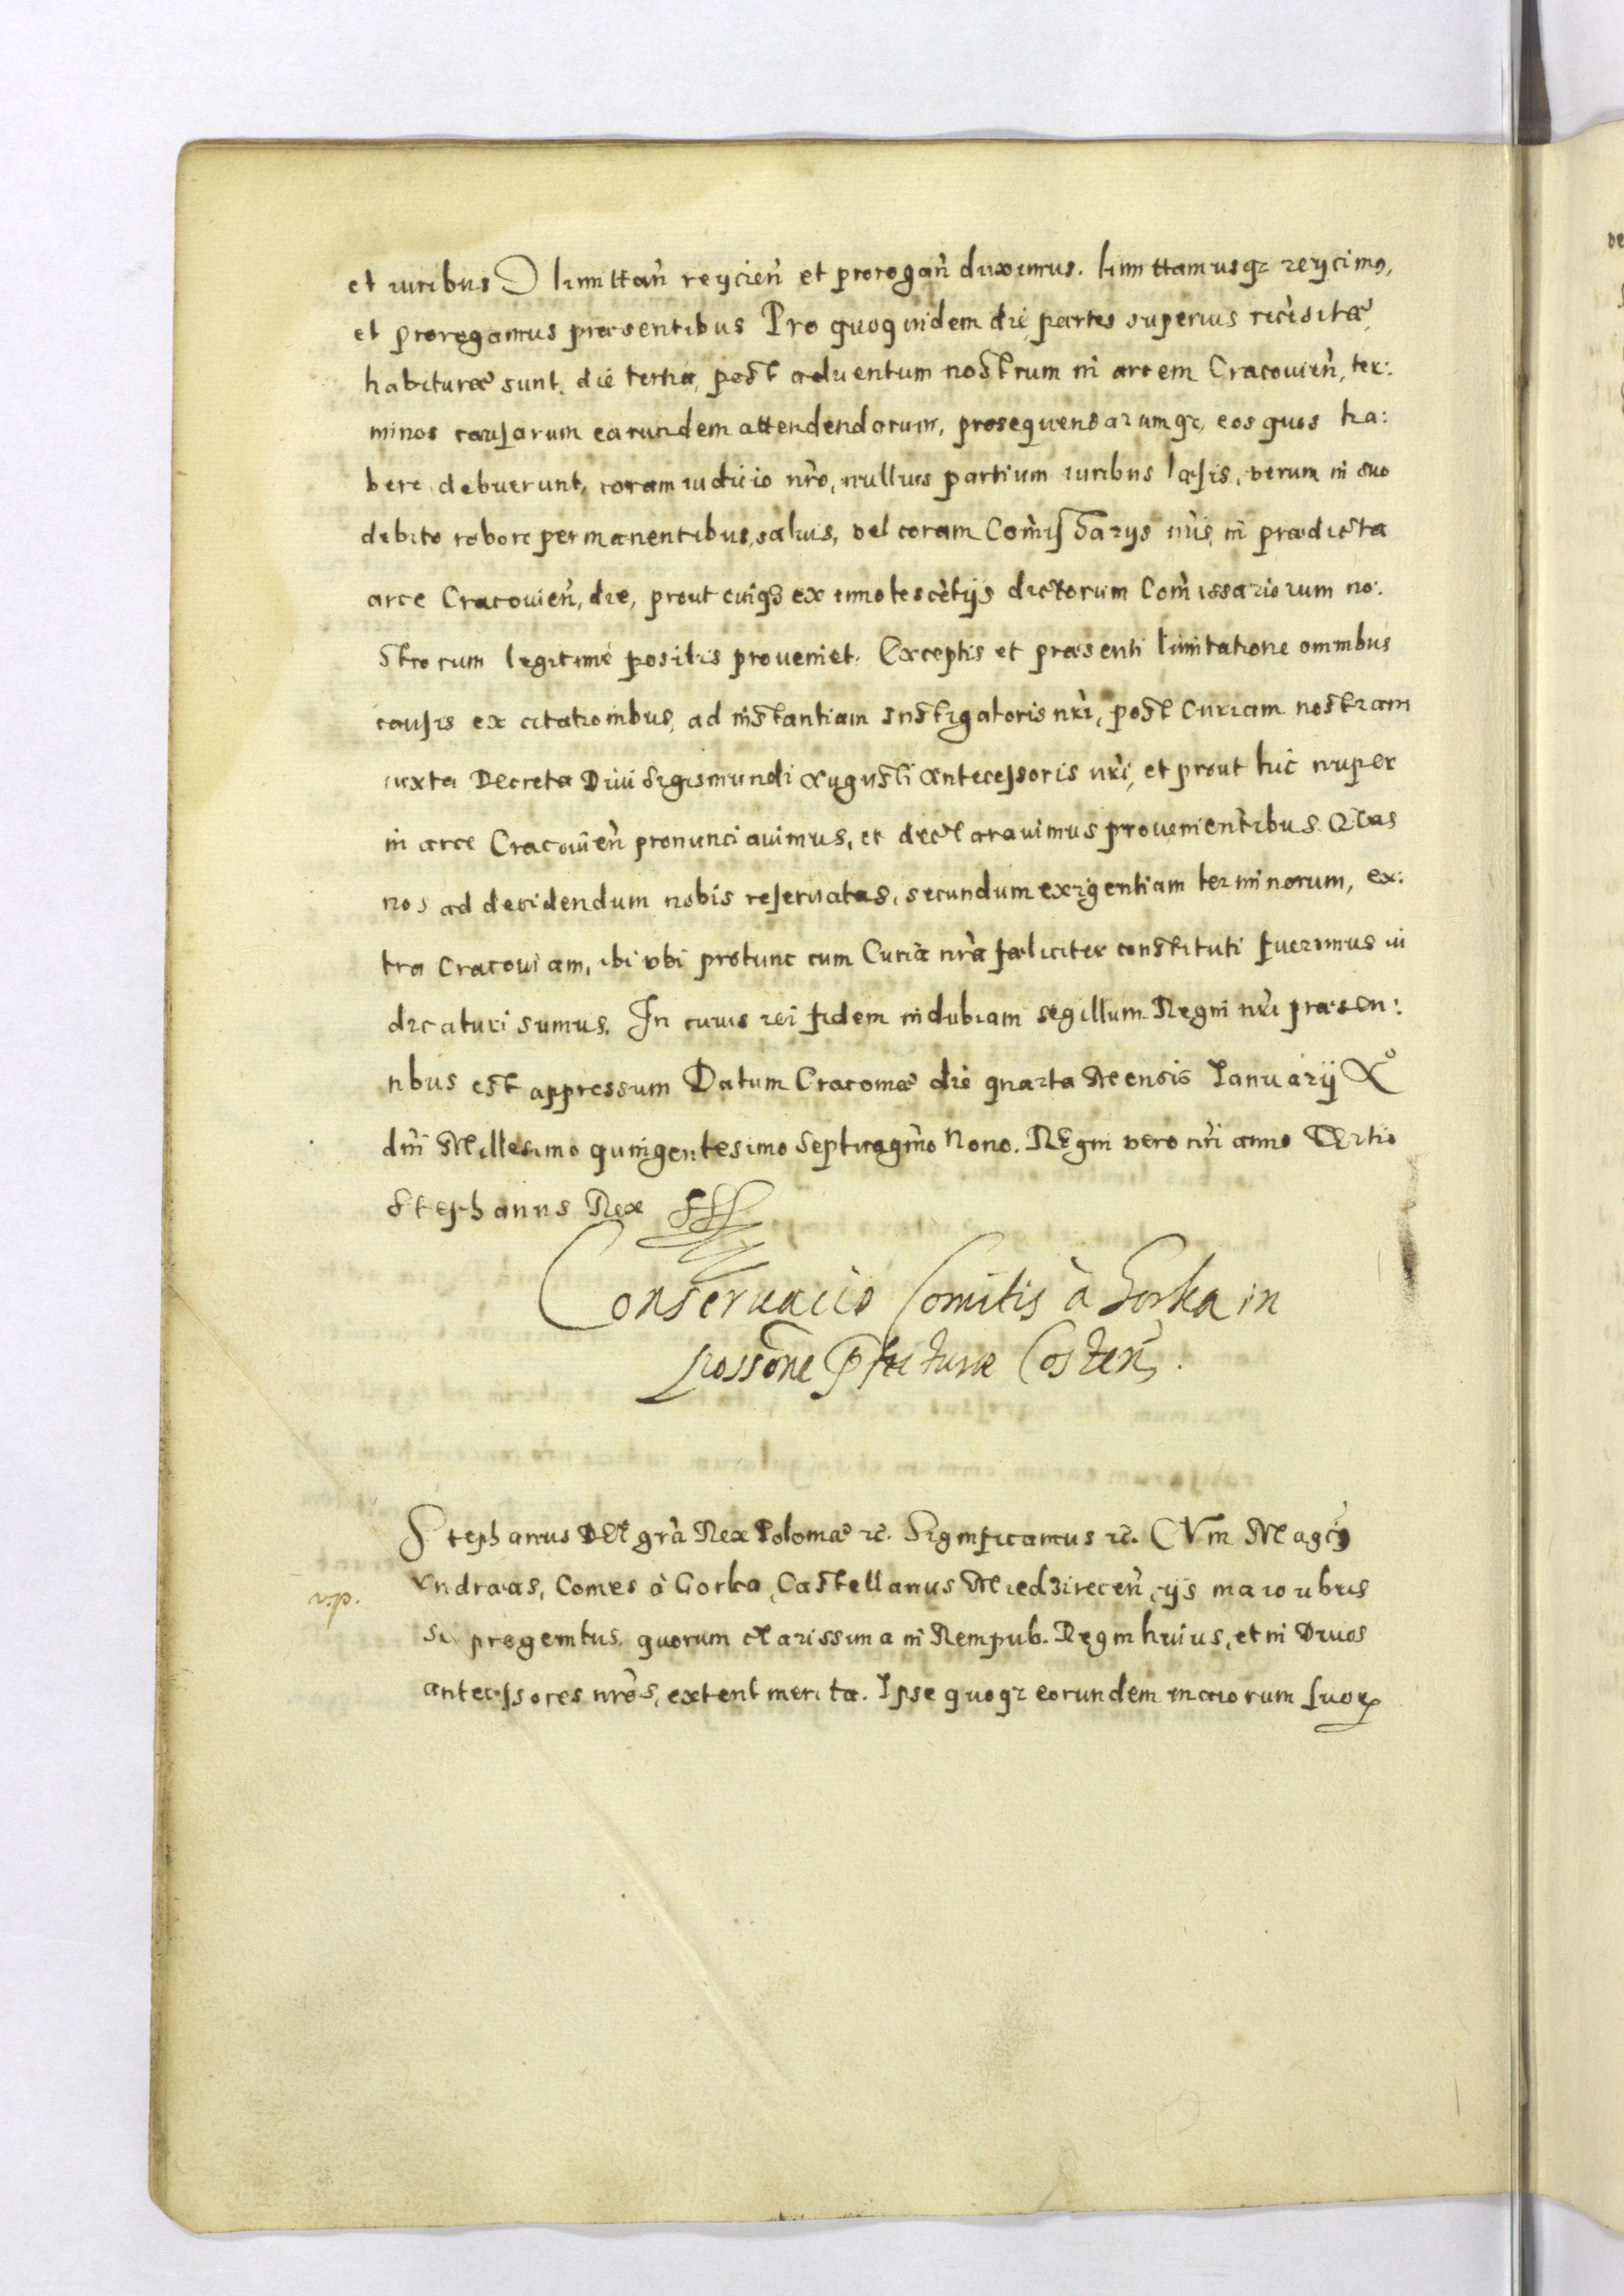 et iuribus limittan̄ reycien̄ et prorogan̄ duximus. limittamusq₃ reycimꝯ,
et prorogamus præsentibus Pro quoquidem die partes superius recēsitæ
habituræ sunt, die tertia, post aduentum nostrum in arcem Cracouien̄, ter:
minos causarum earundem attendendarum, prosequendarumq₃, eos quos ha:
bere debuerunt, coram iudicio nr̄o, nullius partium iuribus læsis, verum in suo
debito robore permanentibus, saluis, vel coram Com̄issarys nr̄is, in prædicta
arce Cracouien̄, die, prout cuiqꝫ ex innotescētijs dictorum Com̄issariorum no:
strorum legitime positis proueniet. Exceptis et præsenti limitatione omnibus
causis ex citationibus, ad instantiam Instigatoris nr̄i, post Curiam nostram
iuxta Decreta Diui Sigismundi Augusti Antecessoris nr̄i, et prout hic nuper
in arce Cracouien̄ pronunciauimus, et declarauimus prouenientibus. Quas
nos ad decidendum nobis reseruatas, secundum exigentiam terminorum, ex:
tra Cracouiam, ibi vbi protunc cum Curia nr̄a fæliciter constituti fuerimus iu
dicaturi sumus. In cuius rei fidem indubiam segillum Regni nr̄i præsen:
tibus est appressum Datum Cracouiæ die quarta Mensis Ianuarij Aº
dn̄i Millesimo quingentesimo Septuagm̄o Nono. REgni vero nr̄i anno TErtio
Stephanus Rex
Conseruacio Comitis à Gorka in
possōne Præfecturæ Costen̄.
Stephanus DEI gr̄a Rex Poloniæ ꝛc̄. Significamus ꝛc̄. CVm Magcꝯ
Andræas, Comes à Gorka, Castellanus Miedzirecen̄, ijs maioribus
vip.
sit progenitus, quorum clarissima in Rempub. Regni huius, et in Diuos
antecessores nr̄os, extent merita. Ipse quoq₃ eorundem maiorum suoꝝ